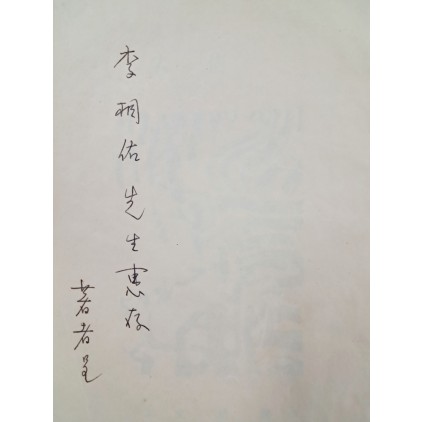 李桐佑先生惠存
著者呈